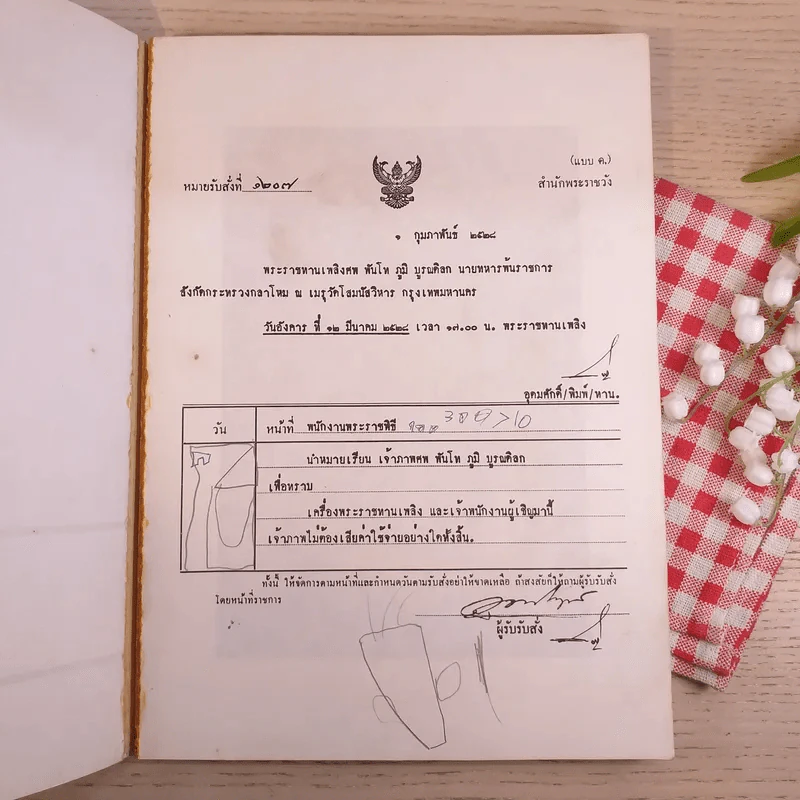 (แบบ ค.)
หมายรับสั่งที่ ๑๒๐๗
สำนักพระราชวัง
๑ กุมภาพันธ์ ๒๕๒๘
พระราชทานเพลิงศพ พันโท ภูมิ บูรณดิลก นายทหารพ้นราชการ
สังกัดกระทรวงกลาโหม ณ เมรุวัดโสมนัสวิหาร กรุงเทพมหานคร
วันอังคาร ที่ ๑๒ มีนาคม ๒๕๒๘ เวลา ๑๗.๐๐ น. พระราชทานเพลิง
อุดมศักดิ์/พิมพ์/ทาน.
วัน
หน้าที่ พนักงานพระราชพิธี
นำหมายเรียน เจ้าภาพศพ พันโท ภูมิ บูรณดิลก
เพื่อทราบ
เครื่องพระราชทานเพลิง และเจ้าพนักงานผู้เชิญมานี้
เจ้าภาพไม่ต้องเสียค่าใช้จ่ายอย่างใดทั้งสิ้น.
ทั้งนี้ ให้จัดการตามหน้าที่และกำหนดวันตามรับสั่งอย่าให้ขาดเหลือ ถ้าสงสัยก็ให้ถามผู้รับรับสั่ง
โดยหน้าที่ราชการ
ผู้รับรับสั่ง